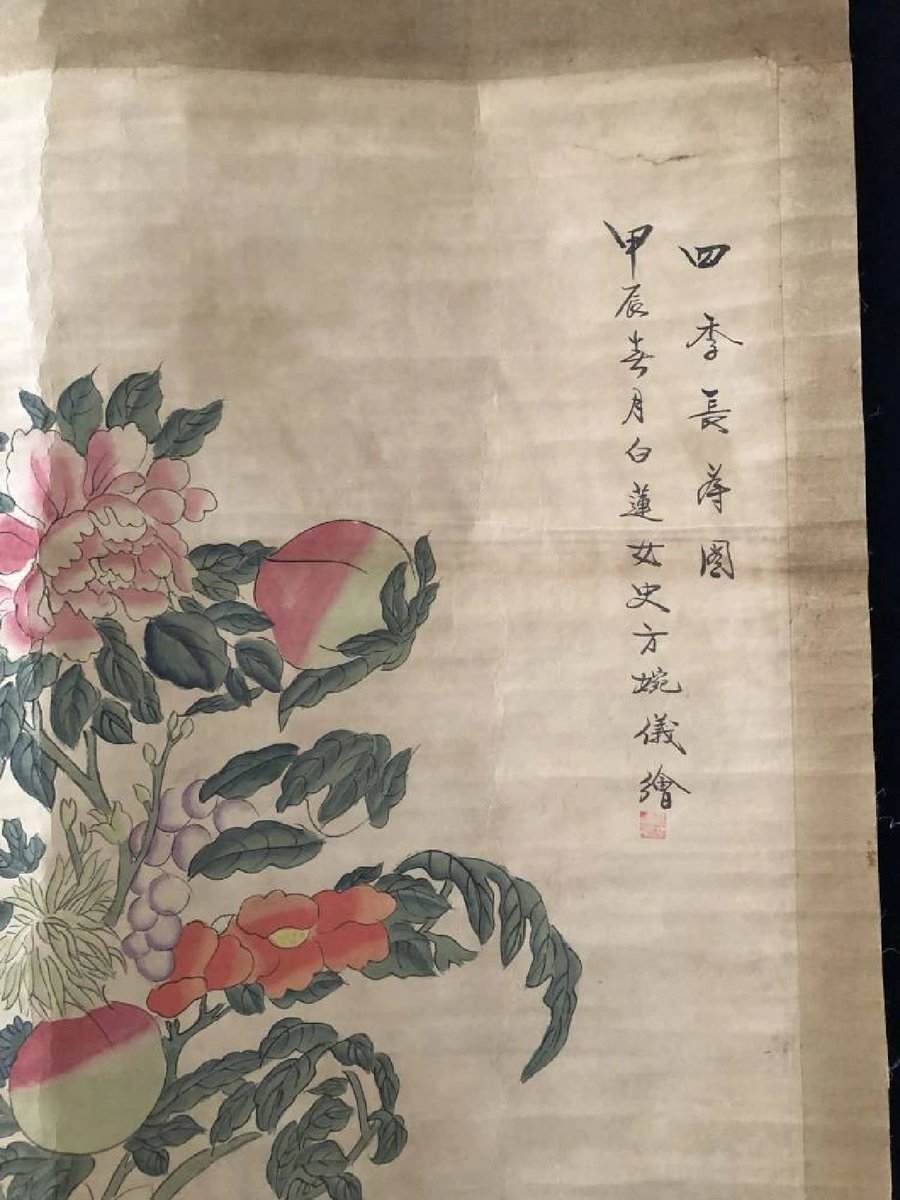 四季長壽圖
甲辰春月白蓮女史方婉儀繪